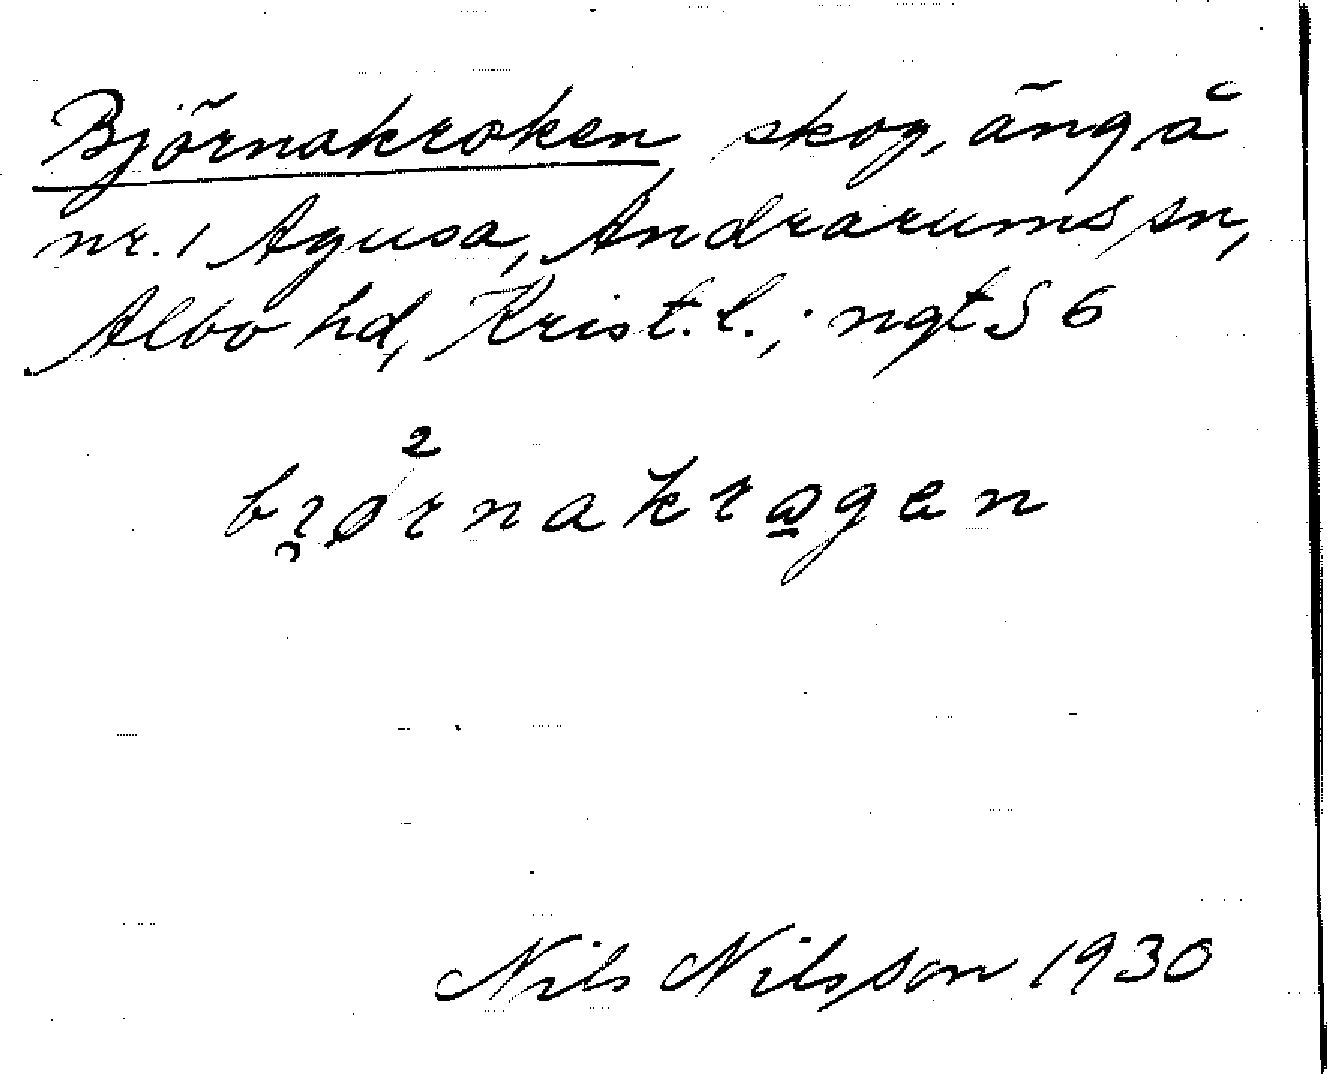 Björnakroken skog, äng å
nr. 1 Agusa, Andrarums sn,
Albo hd, Krist. l.; ngt S 6
Nils Nilsson 1930